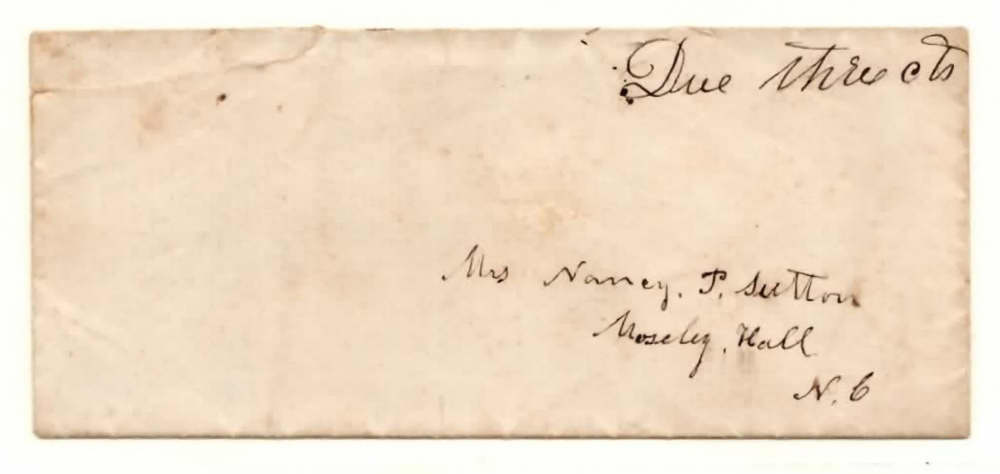 Due three cts
Mrs Nancy. P. Sutton
Moseley, Hall
N. C